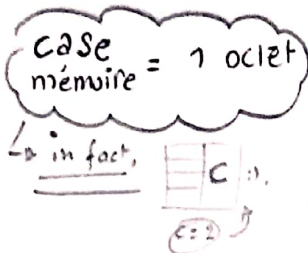 case
mémoire = 1 octet
↳ in fact,
C